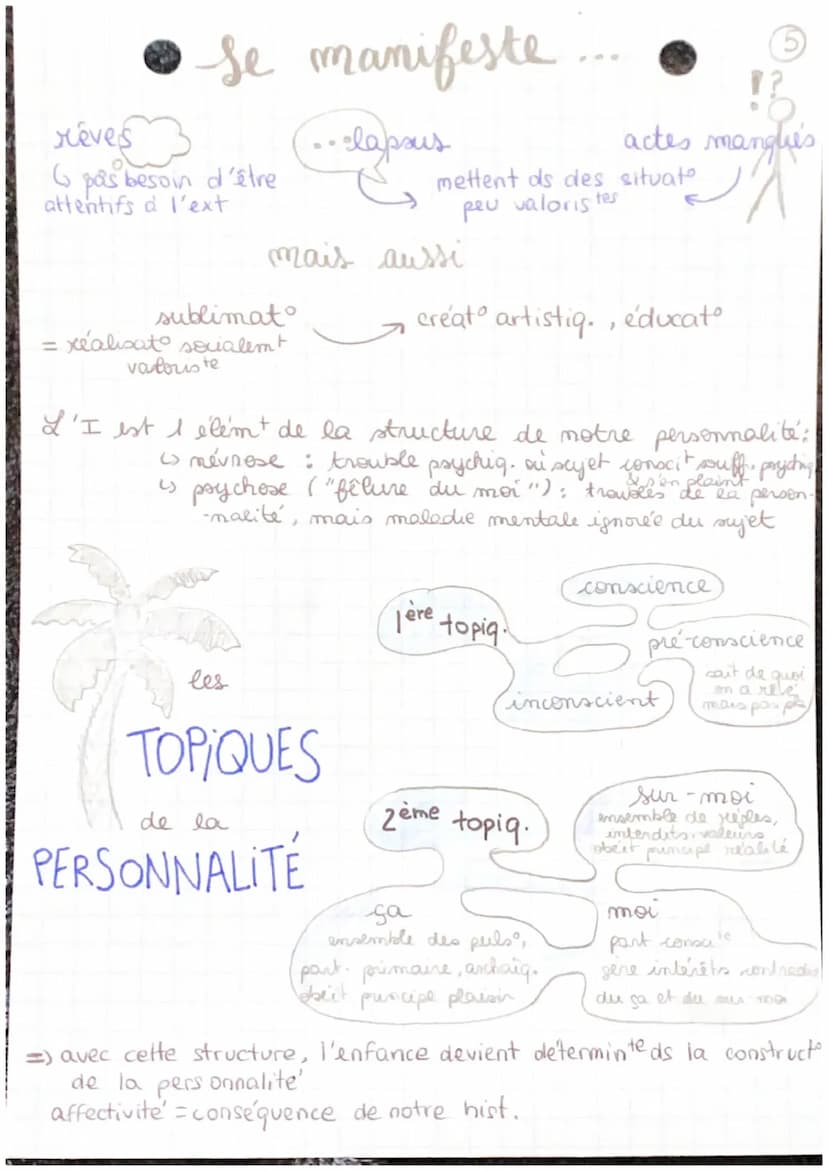 Se manifeste ...
5
!?
rêves
...lapsus
actes manqués
↳ pas besoin d'être
attentifs à l'ext
mettent ds des situat°
peu valoris^tes
mais aussi
sublimat°
créat° artistiq., éducat°
= réalisat° socialem^t
valoris^te
L'I est 1 élém^t de la structure de notre personnalité :
↳ névrose : trouble psychiq. où sujet conscit souff. psychiq
& s'en plaint
↳ psychose ("fêlure du moi") : troubles de la person-
-nalité, mais maladie mentale ignorée du sujet
1ère topiq.
conscience
pré-conscience
sait de quoi
on a rêvé
mais pas pq
inconscient
les
TOPiQUES
de la
PERSONNALiTÉ
2ème topiq.
sur-moi
ensemble de règles,
interdits, valeurs
obéit principe réalité
ça
ensemble des puls°,
part. primaire, archaïq.
obéit principe plaisir
moi
part consc^te
gère intérêts contrad
du ça et du sur-moi
=> avec cette structure, l'enfance devient détermin^te ds la construct°
de la personnalité
affectivité = conséquence de notre hist.